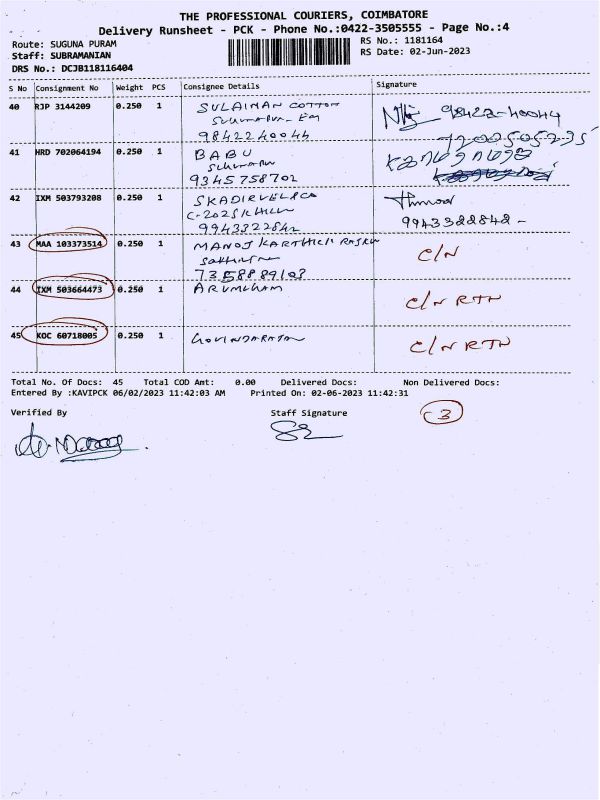 THE PROFESSIONAL COURIERS, COIMBATORE
Delivery Runsheet - PCK - Phone No.:0422-3505555 - Page No.:4
Route: SUGUNA PURAM RS No.: 1181164
Staff: SUBRAMANIAN RS Date: 02-Jun-2023
DRS No.: DCJB118116404
S No Consignment No Weight PCS Consignee Details Signature
40 RJP 3144209 0.250 1 SULAIMAN COTTON 98422-40044
9842240044 7200505235
41 HRD 702064194 0.250 1 BABU
9345758702
42 IXM 503793208 0.250 1 SKADIRVEL
C-202
9943322842 9943322842-
43 MAA 103373514 0.250 1 MANOJ KARTHICK C/N
7358889103
44 IXM 503664473 0.250 1 ARUMUGHAM C/N RTN
45 KOC 60718005 0.250 1 GOVINDARAJAN C/N RTN
Total No. Of Docs: 45 Total COD Amt: 0.00 Delivered Docs: Non Delivered Docs:
Entered By :KAVIPCK 06/02/2023 11:42:03 AM Printed On: 02-06-2023 11:42:31
Verified By Staff Signature 3